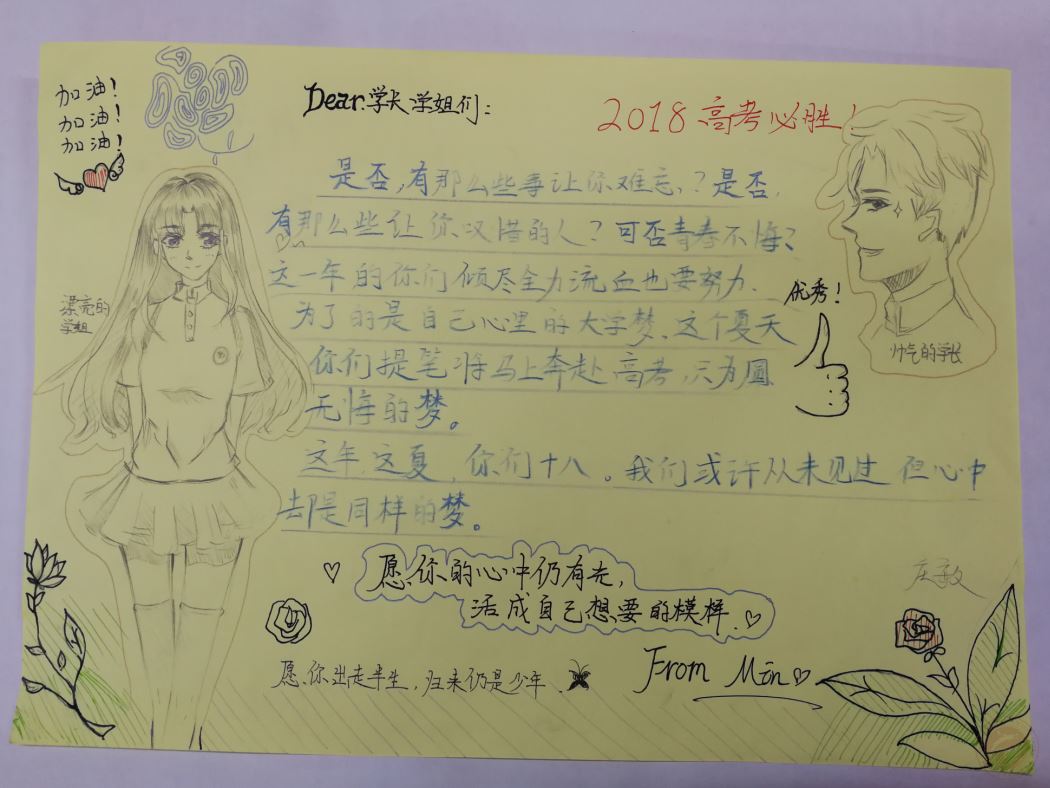 加油!
加油!
加油!
Dear.学长学姐们:
2018高考必胜!
是否,有那么些事让你难忘、?是否,
有那么些让你叹惜的人?可否青春不悔?
这一年的你们倾尽全力流血也要努力.
为了的是自己心里的大学梦.这个夏天
你们提笔将马上奔赴高考,只为圆
无悔的梦。
这年,这夏,你们十八。我们或许从未见过但心中
却是同样的梦。
漂亮的
学姐
优秀!
帅气的学长
愿你的心中仍有光,
活成自己想要的模样.
愿你出走半生,归来仍是少年.
From Min